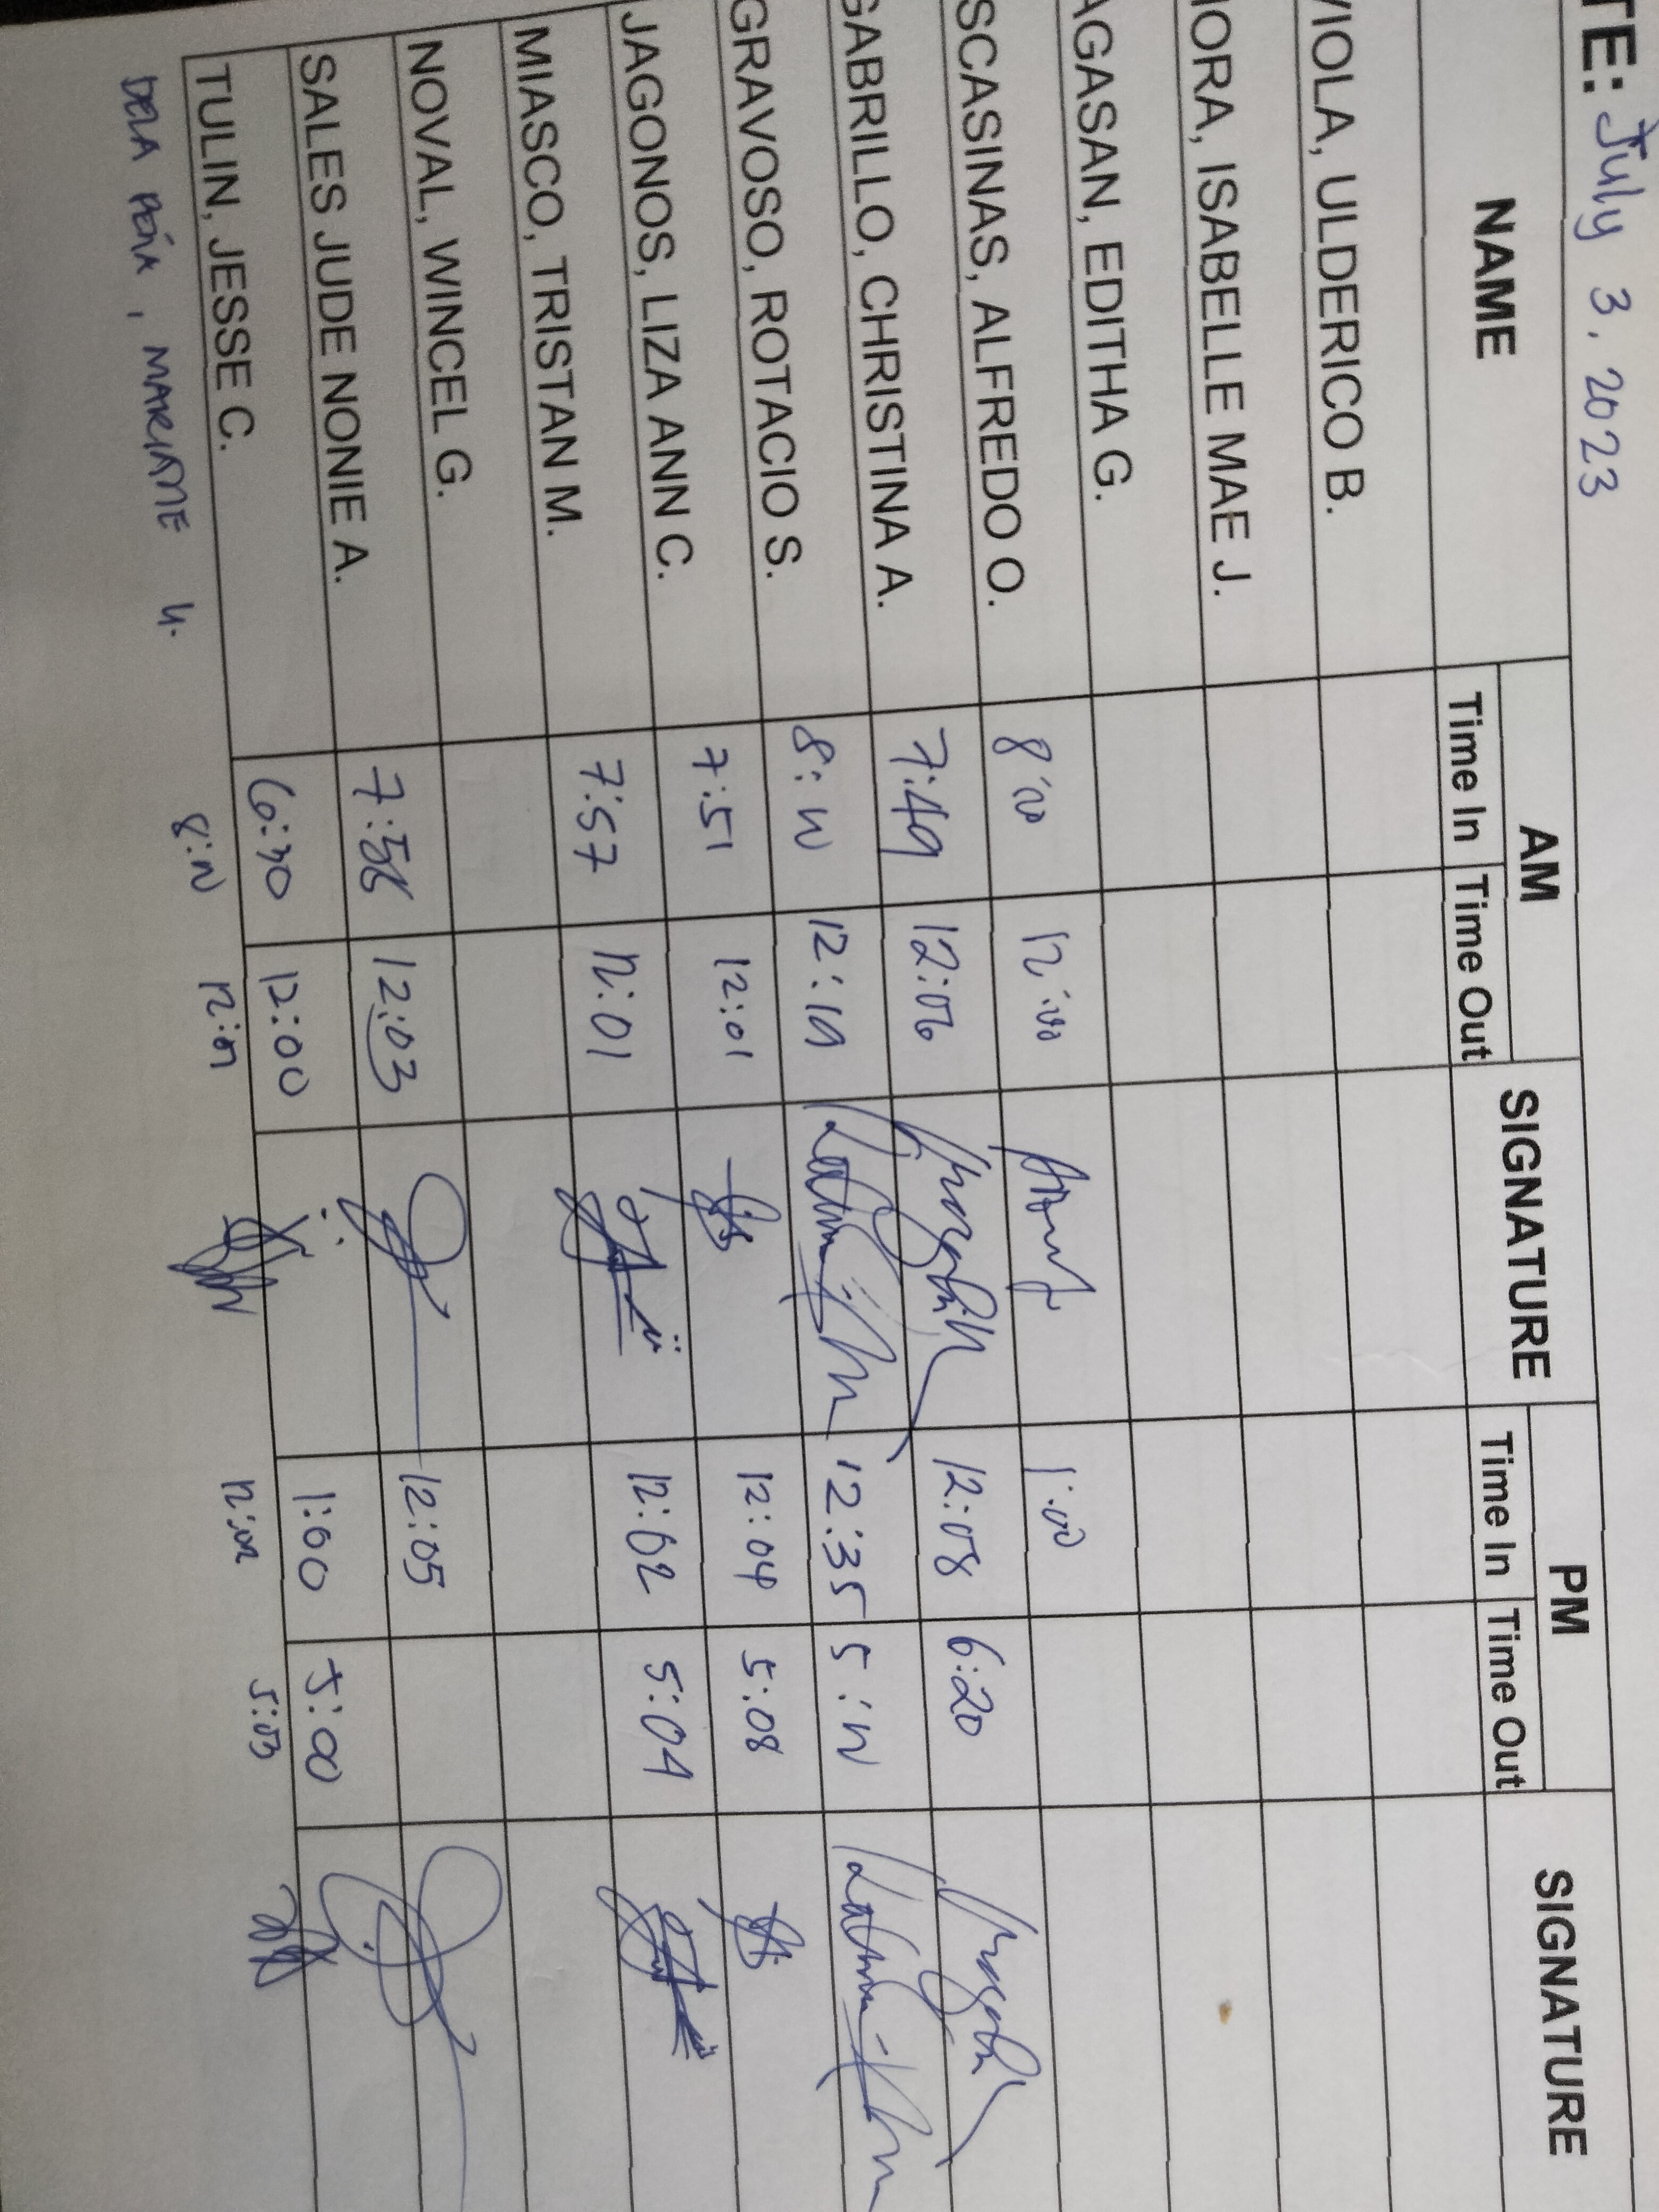 TE: July 3, 2023
NAME AM SIGNATURE PM SIGNATURE
Time In Time Out Time In Time Out
VIOLA, ULDERICO B.
IORA, ISABELLE MAE J.
AGASAN, EDITHA G.
SCASINAS, ALFREDO O. 8:00 12:00 1:00
GABRILLO, CHRISTINA A. 7:49 12:06 12:08 6:20
GRAVOSO, ROTACIO S. 8:00 12:10 12:35 5:00
JAGONOS, LIZA ANN C. 7:51 12:01 12:04 5:08
MIASCO, TRISTAN M. 7:57 12:01 12:02 5:04
NOVAL, WINCEL G.
SALES JUDE NONIE A. 7:58 12:03 12:05
TULIN, JESSE C. 6:30 12:00 1:00 5:00
DELA PEÑA, MARIANE 8:00 5:03